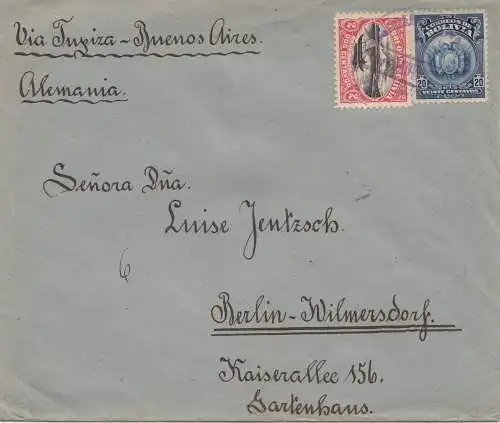 Via Tupiza - Buenos Aires.
Alemania.
CORREOS DE
BOLIVIA
20 20
VEINTE CENTAVOS
2 2
Señora Dña.
Luise Jentzsch.
6
Berlin-Wilmersdorf.
Kaiserallee 156.
Gartenhaus.